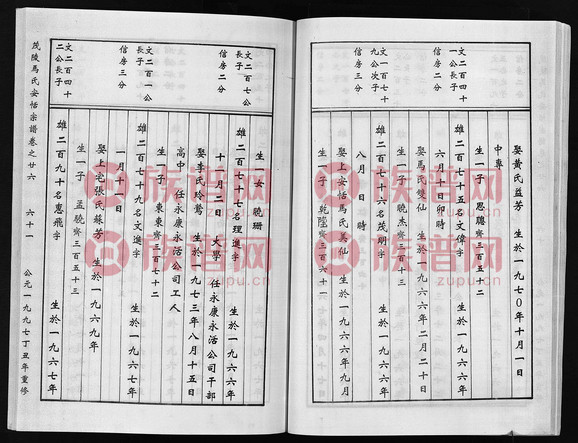 文二百四十
一公長子
信房二分
文一百七十
九公次子
信房三分
娶黃氏益芳 生於一九七〇年十月一日
中專
生一子 思聰齊三百五十二
雄二百七十五名文偉字 生於一九六六年
六月十日卯時
娶馬氏雙仙 生於一九六六年二月二十日
生一子 曉杰齊三百五十三
雄二百七十六名茂朋字 生於一九六六年
八月 日 時
娶上安恬馬氏美仙 生於一九六六年九月
生一子 乾隆齊三百六十一
文二百七公
長子
信房二分
文二百一公
長子
信房三分
文二百四十
二公長子
生一女 曉珊
雄二百七十七名理進字 生於一九六六年
十一月二日 大學 任永康永活公司干部
娶李氏玲鶯 生於一九七三年八月十五日
高中 任永康永活公司工人
生一子 東東齊三百五十二
雄二百七十九名文進字 生於一九六七年
一月十一日
娶上宅張氏蘇芳 生於一九六九年
生一子 孟曉齊三百五十三
雄二百九十名惠飛字 生於一九六七年
茂陵馬氏安恬宗譜卷之廿六 六十一 公元一九九七丁丑年重修
族谱网
zupu.cn
族谱网
zupu.cn
族谱网
zupu.cn
族谱网
zupu.cn